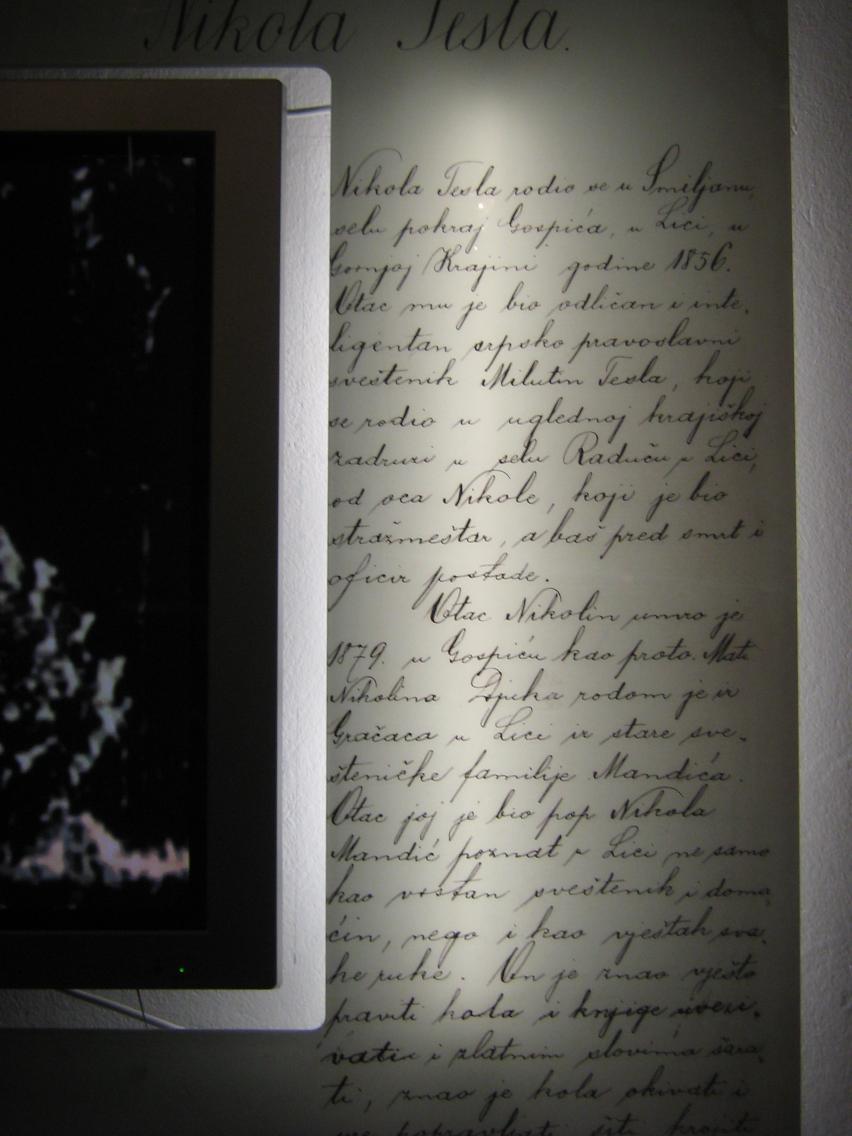 Nikola Tesla.
Nikola Tesla rodio se u Smiljanu,
selu pokraj Gospića, u Lici, u
Gornjoj Krajini godine 1856.
Otac mu je bio odličan i inte-
ligentan srpsko pravoslavni
sveštenik Milutin Tesla, koji
se rodio u uglednoj krajiškoj
zadruzi u selu Raduču u Lici,
od oca Nikole, koji je bio
stražmeštar, a baš pred smrt i
oficir postade.
Otac Nikolin umro je
1879. u Gospiću kao proto. Mati
Nikolina Djuka rodom je iz
Gračaca u Lici iz stare sve-
šteničke familije Mandića.
Otac joj je bio pop Nikola
Mandić poznat u Lici ne samo
kao vrstan sveštenik i doma-
ćin, nego i kao vještak sva-
ke ruke. On je znao vješto
praviti kola i knjige uvezi-
vati i zlatnim slovima šara-
ti, znao je kola okivati i
sve popravljati šiti krojiti